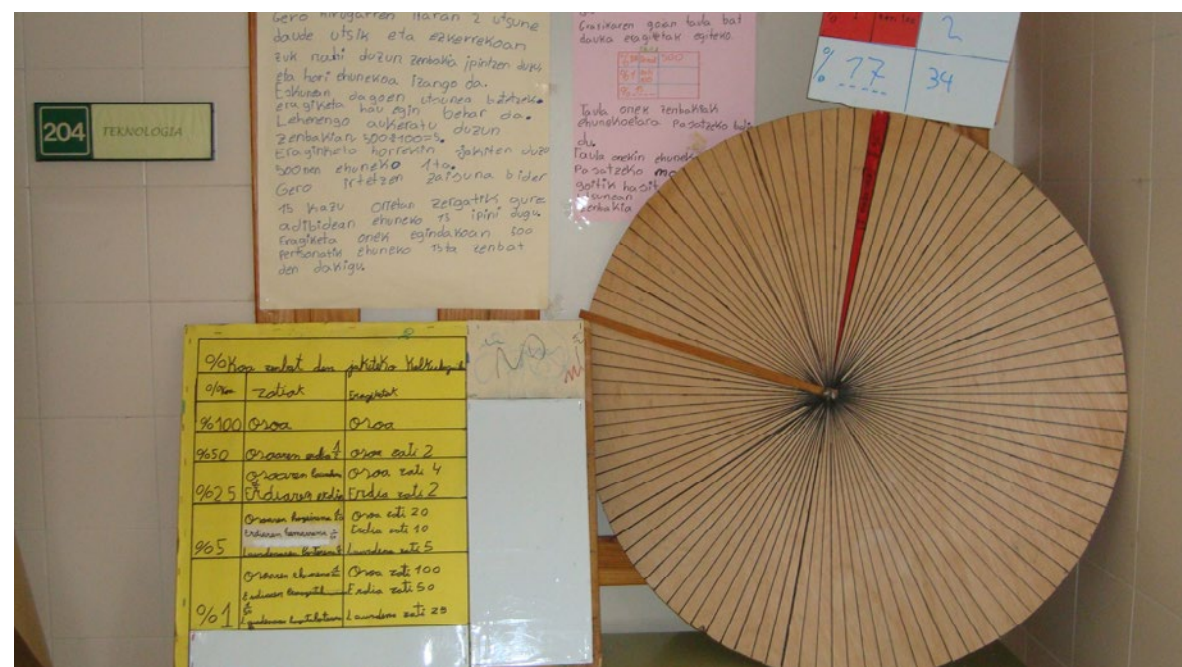 204 TEKNOLOGIA
Gero hirugarren ilaran 2 utsune
daude utsik eta ezkerrekoan
zuk nahi duzun zenbakia ipintzen duzu
eta hori ehunekoa izango da.
Eskuinean dagoen utsunea betetzeko
eragiketa hau egin behar da.
Lehenengo aukeratu duzun
zenbakian 500:100=5.
Eragiketa horrekin jakiten duzu
500 nen ehuneko 1ta.
Gero irtetzen zaizuna bider
15 kazu onetan zergatik gure
adibidean ehuneko 15 ipini dugu.
Eragiketa onek egindakoan 500
pertsonatik ehuneko 15ta zenbat
den dakigu.
Grafikaren goian taula bat
dauka eragiketak egiteko.
500
%1
Taula onek zenbakiak
ehunekoetara pasatzeko balio
du.
Taula onekin ehuneko
Pasatzeko
goitik hasi
utsunean
zenbakia
2
% 17 34
%Koa zenbat den jakiteko Kalkulagailu
%Koa Zatiak Eragiketak
%100 Osoa Osoa
%50 Osoaren erdia Osoa zati 2
Osoaren laurden Osoa zati 4
%25 Erdiaren erdia Erdia zati 2
Osoa zati 20
Erdia zati 10
%5 Laurdena zati 5
Osoa zati 100
Erdia zati 50
%1 Laurdena zati 25